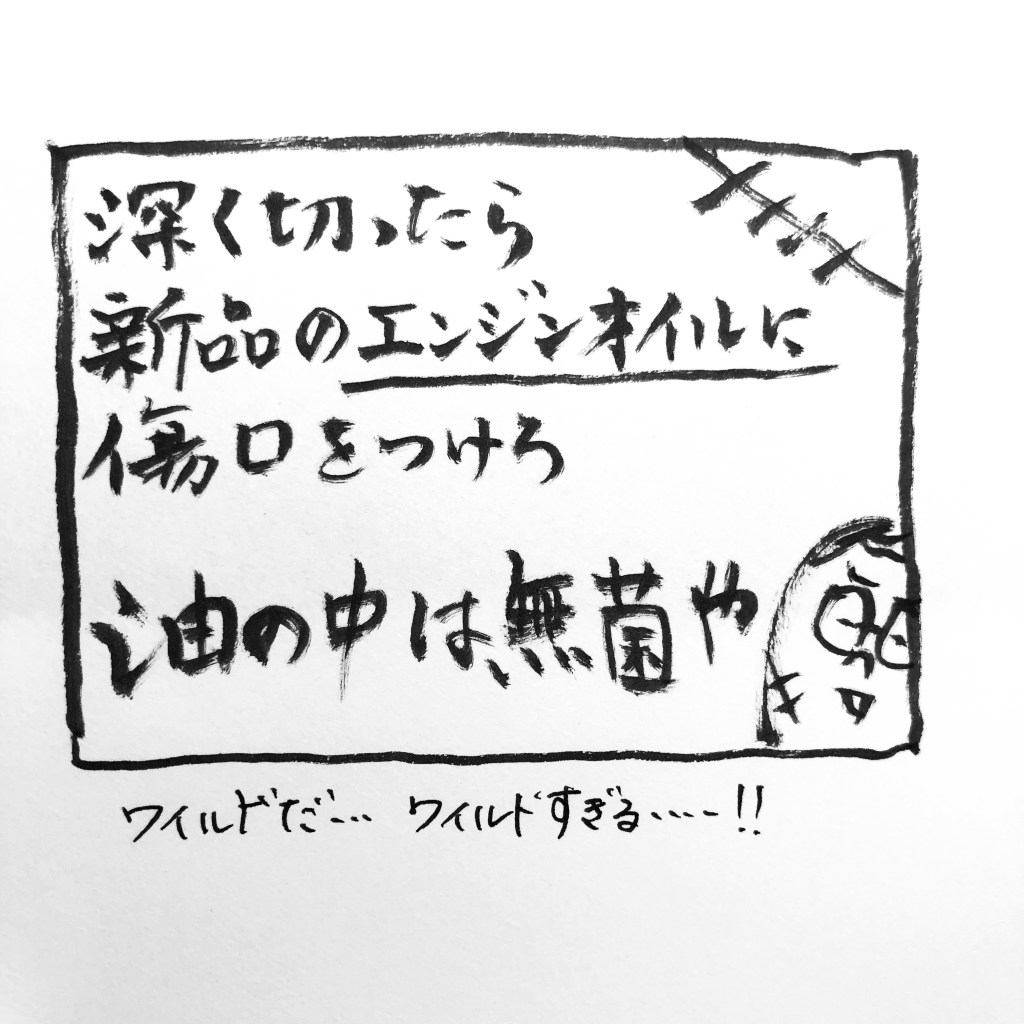 深く切ったら
新品のエンジンオイルに
傷口をつけろ
油の中は、無菌や
ワイルドだ… ワイルドすぎる….!!